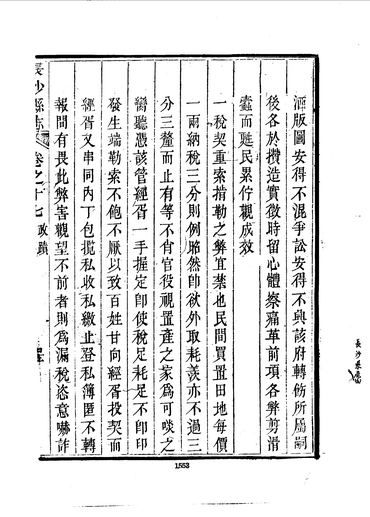 洒版圖安得不混爭訟安得不與該府轉飭所屬嗣
後各於攢造實徵時留心體察痛革前項各弊剪滑
蠹而甦民累佇觀成效
一稅契重索掯勒之弊宜禁也民間買置田地每價
一兩納稅三分則例昭然卽欲外取耗羨亦不過三
分三釐而止有等不肖官役視置產之家爲可啖之
臠聽憑該管經胥一手握定卽使稅足耗足不卽印
發生端勒索不飽不厭以致百姓甘向經胥投契而
經胥又串同內丁包攬私收私繳止登私簿匿不轉
報間有畏此弊害觀望不前者則爲漏稅恣意嚇詐
長沙縣志
卷之十七
政蹟
長沙縣志
1553